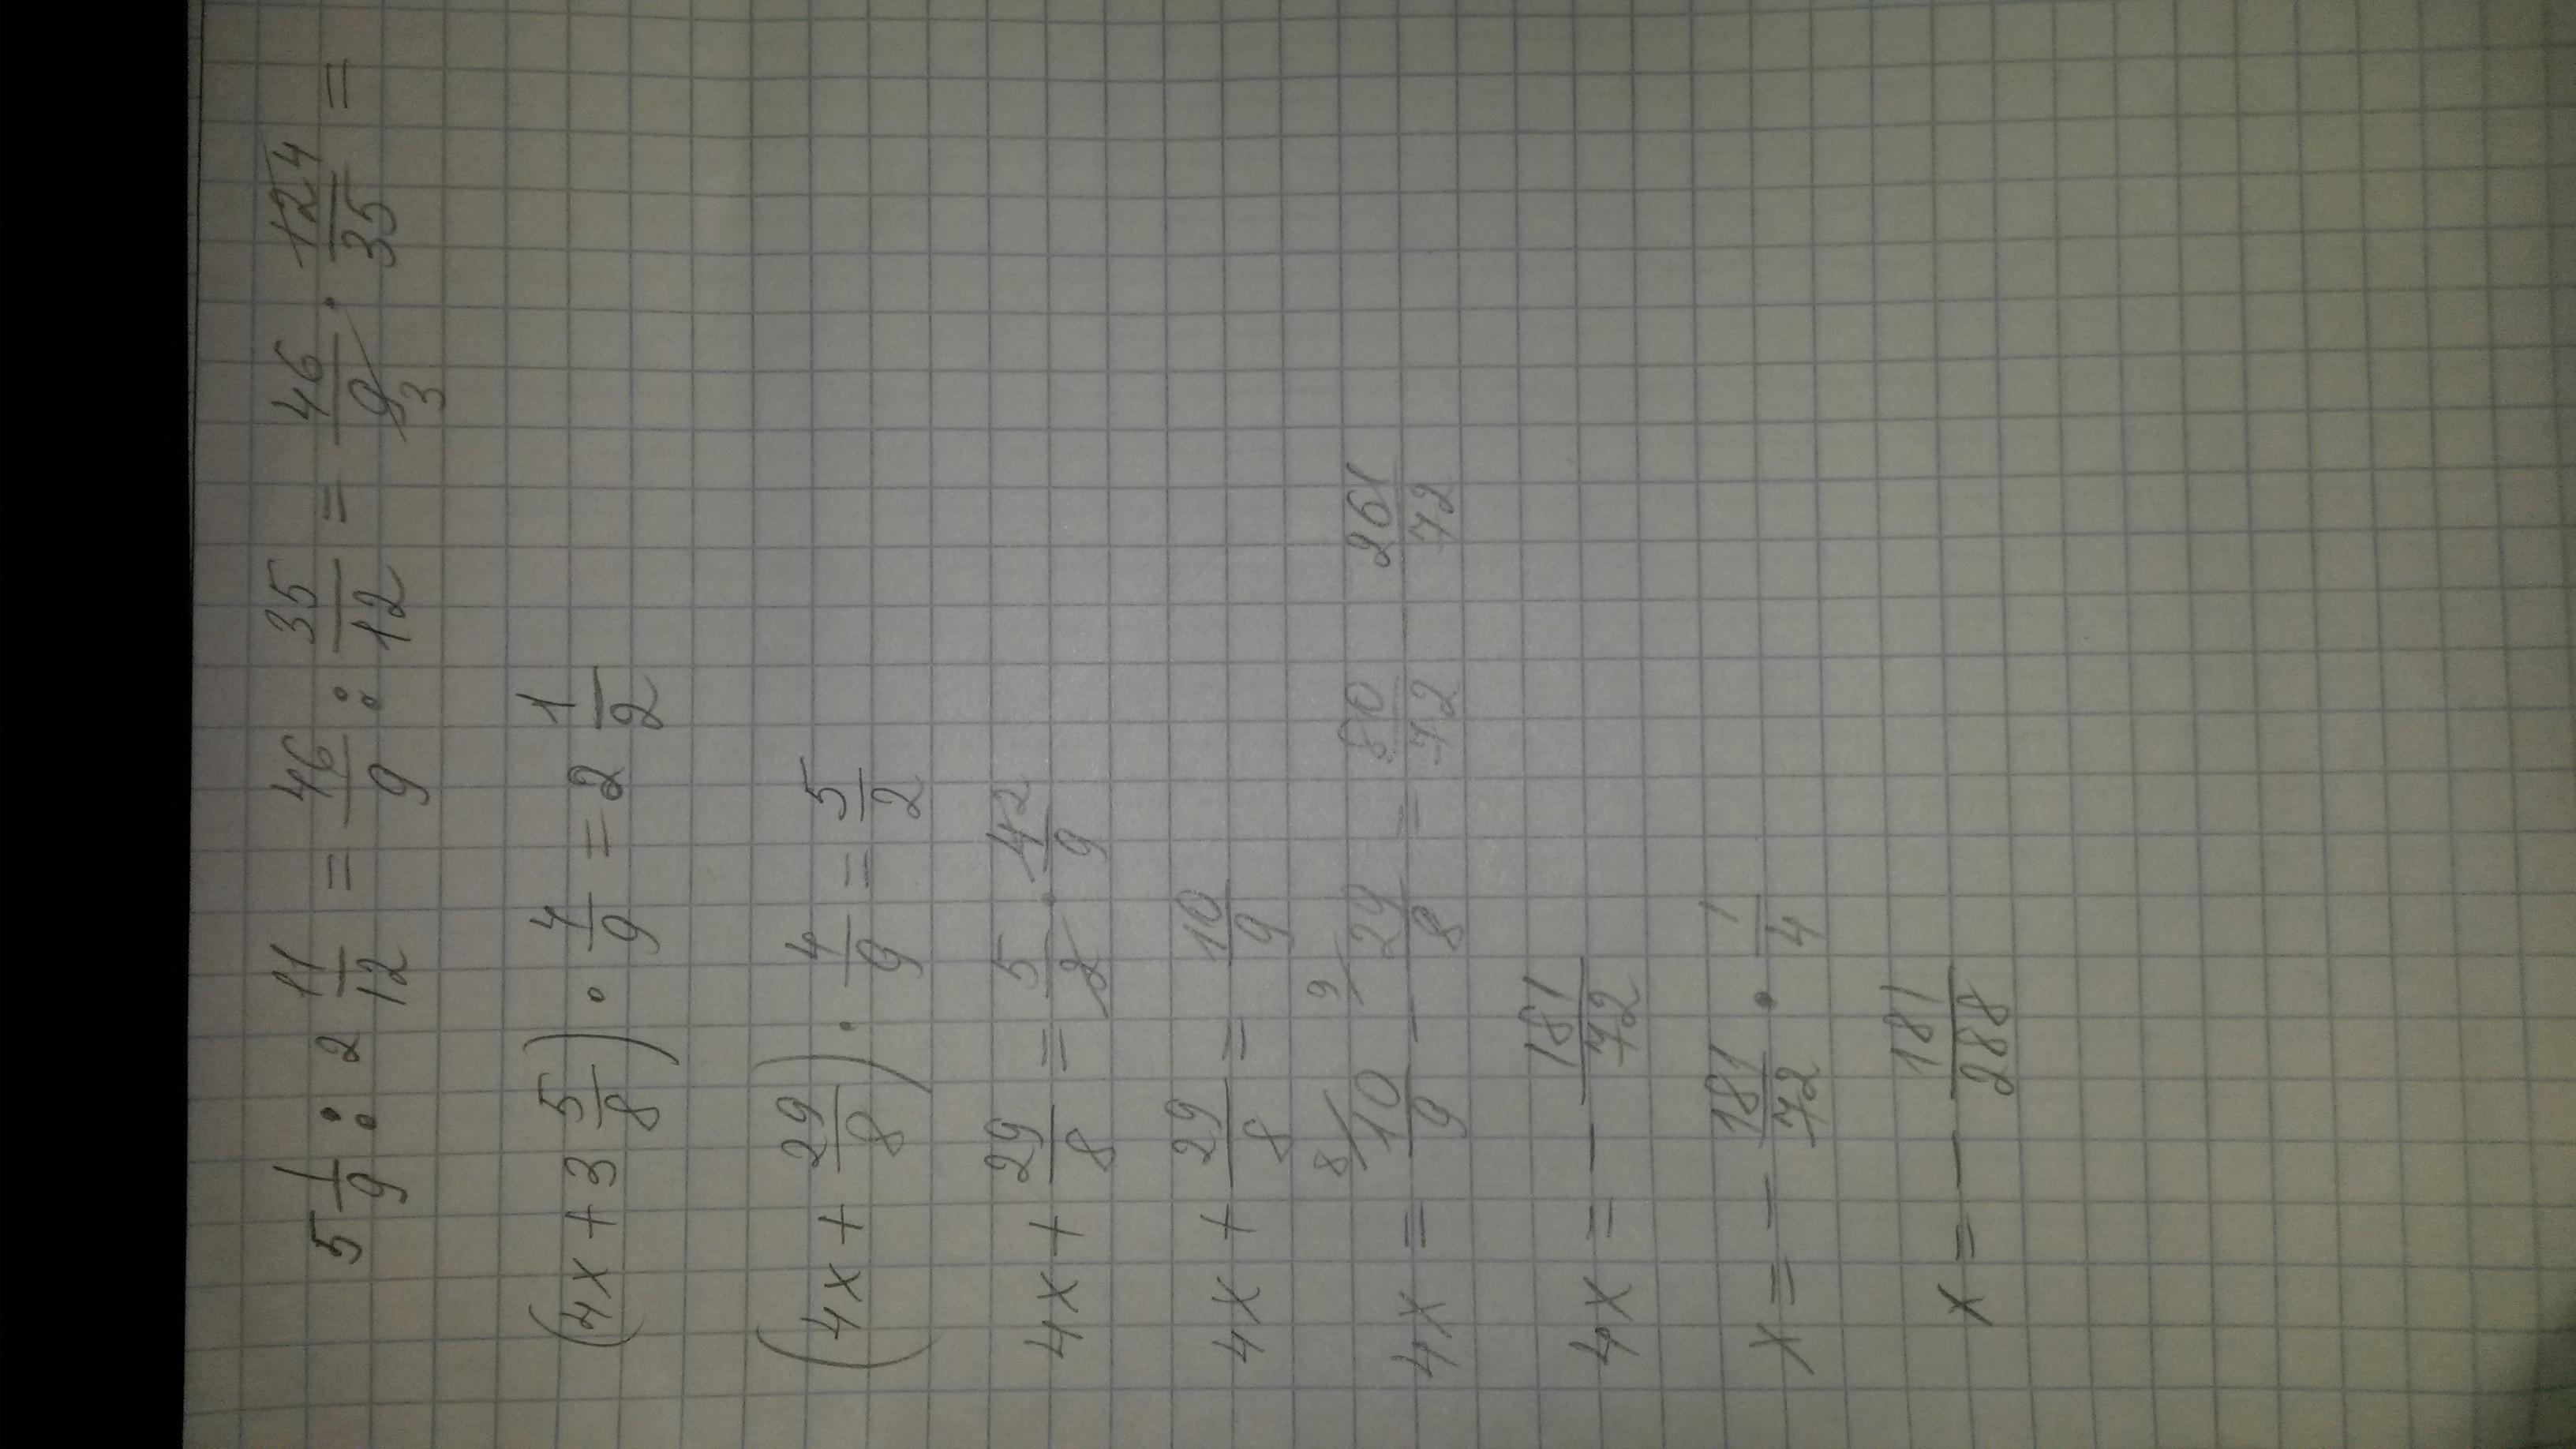 5 1/9 : 2 11/12 = 46/9 : 35/12 = 46/9 3 · 12 4/35 =
(4x + 3 5/8) · 4/9 = 2 1/2
(4x + 29/8) · 4/9 = 5/2
4x + 29/8 = 5/2 · 4 2/9
4x + 29/8 = 10/9
4x = 8/ 10/9 - 9/ 29/8 = 80/72 - 261/72
4x = - 181/72
x = - 181/72 · 1/4
x = - 181/288